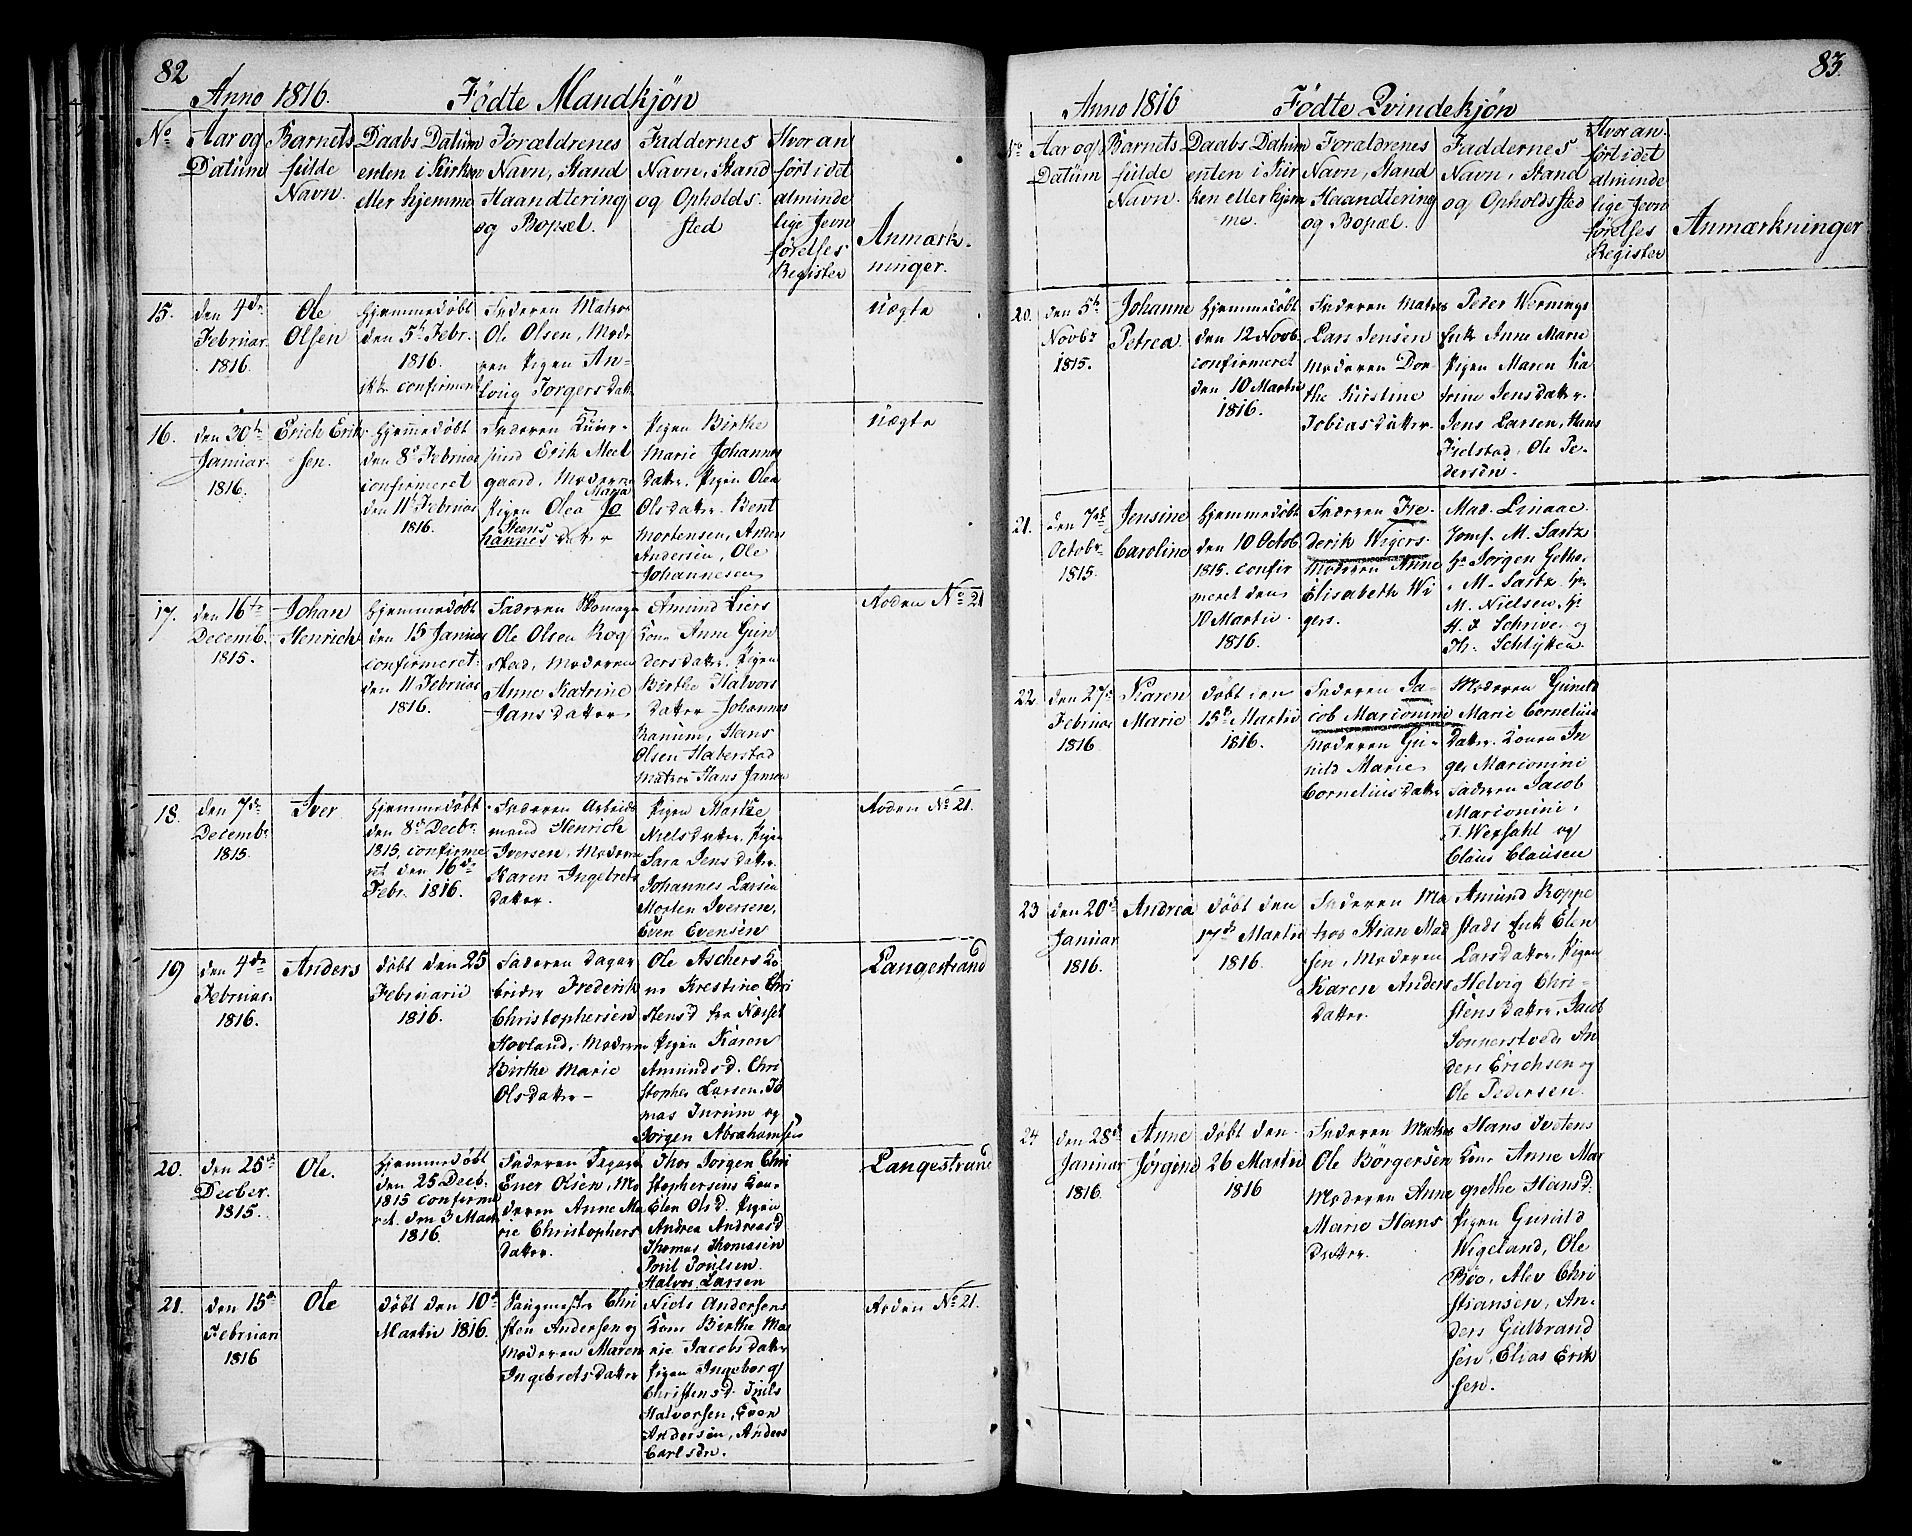 82
Anno 1816. Fødte Mandkjøn
No
Aar og
Datum
Barnets
fulde
Navn.
Daabs Datum
enten i Kirken
eller hjemme
Forældrenes
Navn, Stand
Haandtering
og Bopæl.
Faddernes
Navn, Stand
og Opholds
sted
Hvor an
ført i det
alminde
lige Jevn
førelses
Register
Anmærk-
ninger.
15.
den 4de
Februar.
1816.
Ole
Olsen
Hjemmedøbt
den 5te Febr.
1816.
confirmeret
Faderen Matros
Ole Olsen, Mod
ren Pigen An
Torgersdatter
Uægte
16.
den 30te
Januar.
1816.
Erich Erik
sen.
Hjemmedøbt
den 8de Februar
confirmeret
den 11te Februar
1816.
Faderen
Erik Meel
gaard, Moderen
Pigen Olea Maria Jo
hannes Steens datter
Pigen Birthe
Marie Johannes
datter, Pigen Olea
Olsdatter. Bent
Mortensen, Anders
Andersen, Ole
Johannesen
Uægte
17.
den 16te
Decemb.
1815.
Johan
Henrich
Hjemmedøbt
den 15 Januar
confirmeret
den 11 Februar
1816.
Faderen
Ole Olsen Rog
stad, Moderen
Anne Katrine
Jansdatter
Amund Liers
Kone Anne Gun
dersdatter, Pigen
Birthe Halvors
datter Johannes
Hanum, Hans
Olsen Haberstad
Matros Hans Jansen
Aroden No 21
18.
den 7de
Decembr.
1815.
Iver
Hjemmedøbt
den 8de Decbr.
1815, confirme
ret den 16de
Febr. 1816.
Faderen Arbeids
mand Henrich
Iversen, Moderen
Karen Ingebrets
datter.
Pigen Marthe
Nielsdatter, Pigen
Sara Jensdatter
Johannes Larsen
Morten Iversen,
Even Evensen
Aroden No 21.
19
den 4de
Februar.
1816.
Anders
døbt den 25
Februarii
1816.
Faderen Dagar
beider Frederik
Christophersen
Hovland, Moderen
Birthe Marie
Olsdatter
Ole Aschers Ko
ne Krestine Chri
stensd fra Næsset
Pigen Karen
Amundsd. Chri
stopher Larsen, To
mas Furum og
Jørgen Abrahamsen
Langestrand
20.
den 25de
Decber.
1815.
Ole.
Hjemmedøbt
den 25 Decb.
1815 confirme
ret. den 3 Marti
1816.
Faderen
Ener Olsen, Mo
deren Anne Ma
rie Christophers
datter.
Thor Jørgen Chri
stophersens Kone
Elen Olsd. Pigen
Andrea Andreasd
Thomas Thomasen
Poul Poulsen
Halvor Larsen
Langestrand
21.
den 15de
Februari
1816
Ole
døbt den 10de
Martii 1816.
Chri
sten Andersen og
Moderen Maren
Ingebretsdatter
Niels Andersens
Kone Birthe Ma
rie Jacobsdatter
Pigen Ingeborg
Christensd. Niels
Halvorsen, Even
Andersen, Anders
Carlsen.
Aroden No 21.
83.
Anno 1816 Fødte Qvindekjøn
No
Aar og
Datum
Barnets
fulde
Navn.
Daabs Datum
enten i Kir
ken eller hjem
me.
Forældrenes
Navn, Stand
Haandtering
og Bopæl.
Faddernes
Navn, Stand
og Opholdssted
Hvor an-
ført i det
alminde
lige Jevn
førelses
Register
Anmærkninger
20.
den 5te
Novbr
1815.
Johanne
Petrea.
Hjemmedøbt
den 12 Novb.
confirmeret
den 10 Martii
1816.
Faderen Matros
Lars Jensen
Moderen Dor-
the Kirstine
Tobiasdatter.
Peder Wernings
Enk Anne Marie
Pigen Maren Ka
trine Jensdatter.
Jens Larsen, Hans
Fielstad, Ole Pe-
dersen.
21.
den 7de
Octobr
1815.
Jensine
Caroline
Hjemmedøbt
den 10 Octob
1815. confir
meret den
10 Martii
1816.
Faderen Fre-
derik Wigers.
Moderen Anne
Elisabeth Wi
gers.
Mad. Linaae
Jomf. M. Sartz
Hr Jørgen Getho
M. Sartz Hr.
M. Nielsen, Hr
H. J Schrive og
Th. Schlytter.
22
den 27de
Februar
1816
Karen
Marie
døbt den
15de Martii
1816.
Faderen Ja-
cob Marionini
Moderen Gu-
nild Marie
Corneliusdatter
Moderen Gunild
Marie Cornelius
datter. Konen In
ger Marionini
Faderen Jacob
Marionini,
T. Wepfahl og
Claus Clausen
23
den 20de
Januar
1816.
Andrea
døbt den
17de Martii
1816.
Faderen Ma
tros Stian Mad
sen, Moderen
Karen Anders
datter.
Amund Roppe
stads Enk Elen
Larsdatter, Pigen
Helvig Chri-
stensdatter, Jacob
Sønnerstvedt An
ders Erichsen og
Ole Pedersen
24
den 28de
Januar
1816.
Anne
Jørgine
døbt den
26 Martii
1816
Faderen Matros
Ole Børgersen
Moderen Anne
Marie Hans
datter.
Hans Tvetens
Kone Anne Mar
grethe Hansd.
Pigen Gunild
Wigeland, Ole
Boe, Alev Chri
stiansen, An-
ders Gulbrand
sen, Elias Erik
sen.